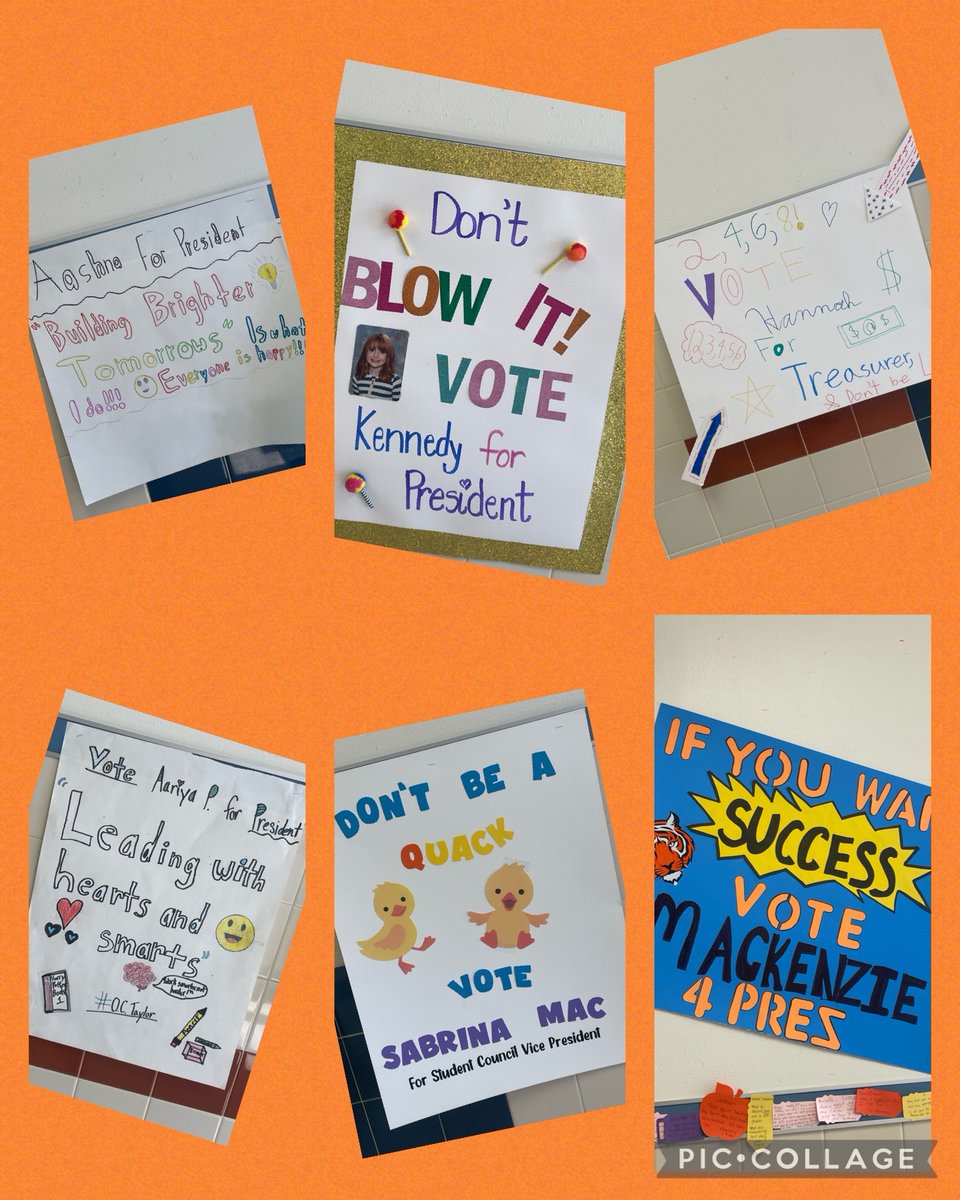 Aashna For President
"Building Brighter
Tomorrows" Is what
I do!!! Everyone is happy!!!
Don't
BLOW IT!
VOTE
Kennedy for
President
2, 4, 6, 8!
VOTE
Hannah
For
123456
$
$@$
Treasurer,
& Don't be L
Vote Aariya P. for President
"Leading with
hearts and
smarts"
Work smarter not
harder!!
#O.C.Taylor
DON'T BE A
QUACK
VOTE
SABRINA MAC
For Student Council Vice President
IF YOU WAN
SUCCESS
VOTE
MACKENZIE
4 PRES
PIC•COLLAGE